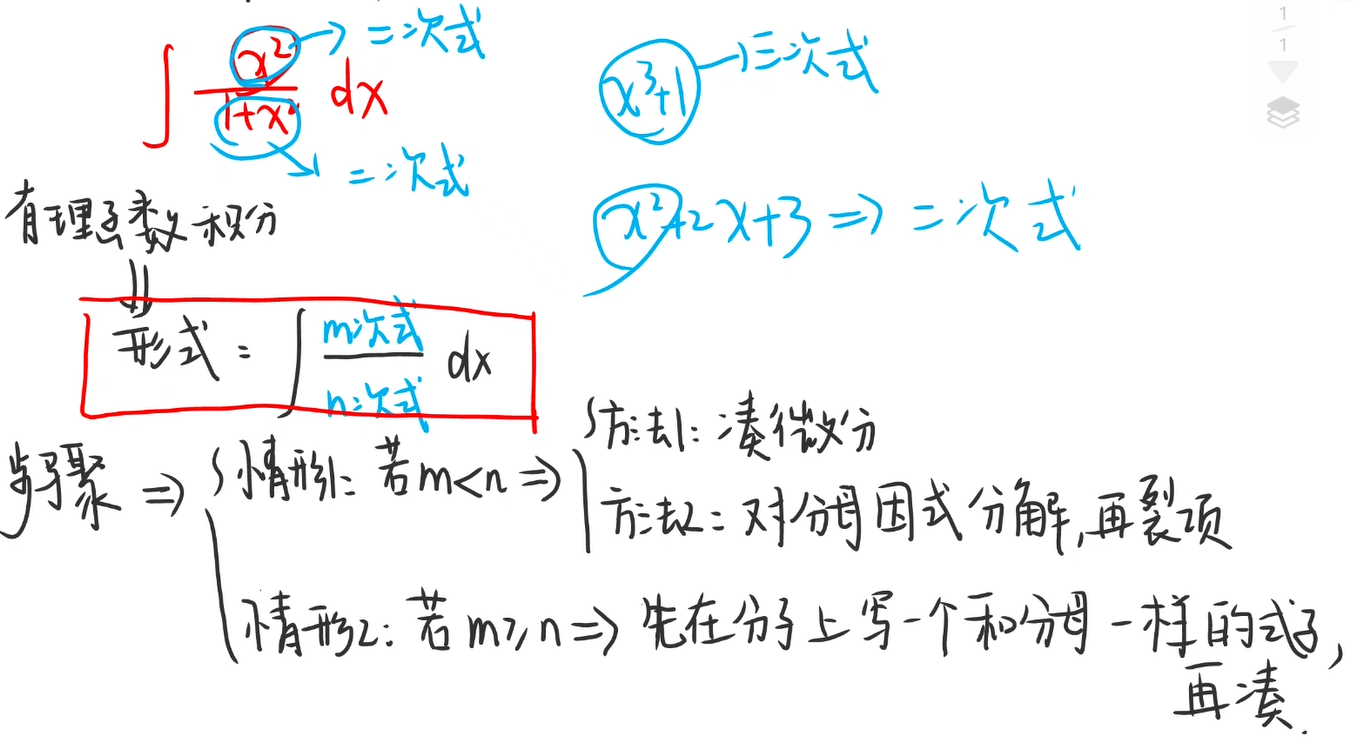 ∫ x²/(1+x²) dx
→ 二次式
→ 二次式
x³+1 → 三次式
x²+2x+3 ⇒ 二次式
1
1
有理函数积分
⇓
形式: ∫ m次式/n次式 dx
步骤 ⇒ { 情形1: 若m<n ⇒ { 方法1: 凑微分
方法2: 对分母因式分解,再裂项
情形2: 若m⩾n ⇒ 先在分子上写一个和分母一样的式子,
再凑.